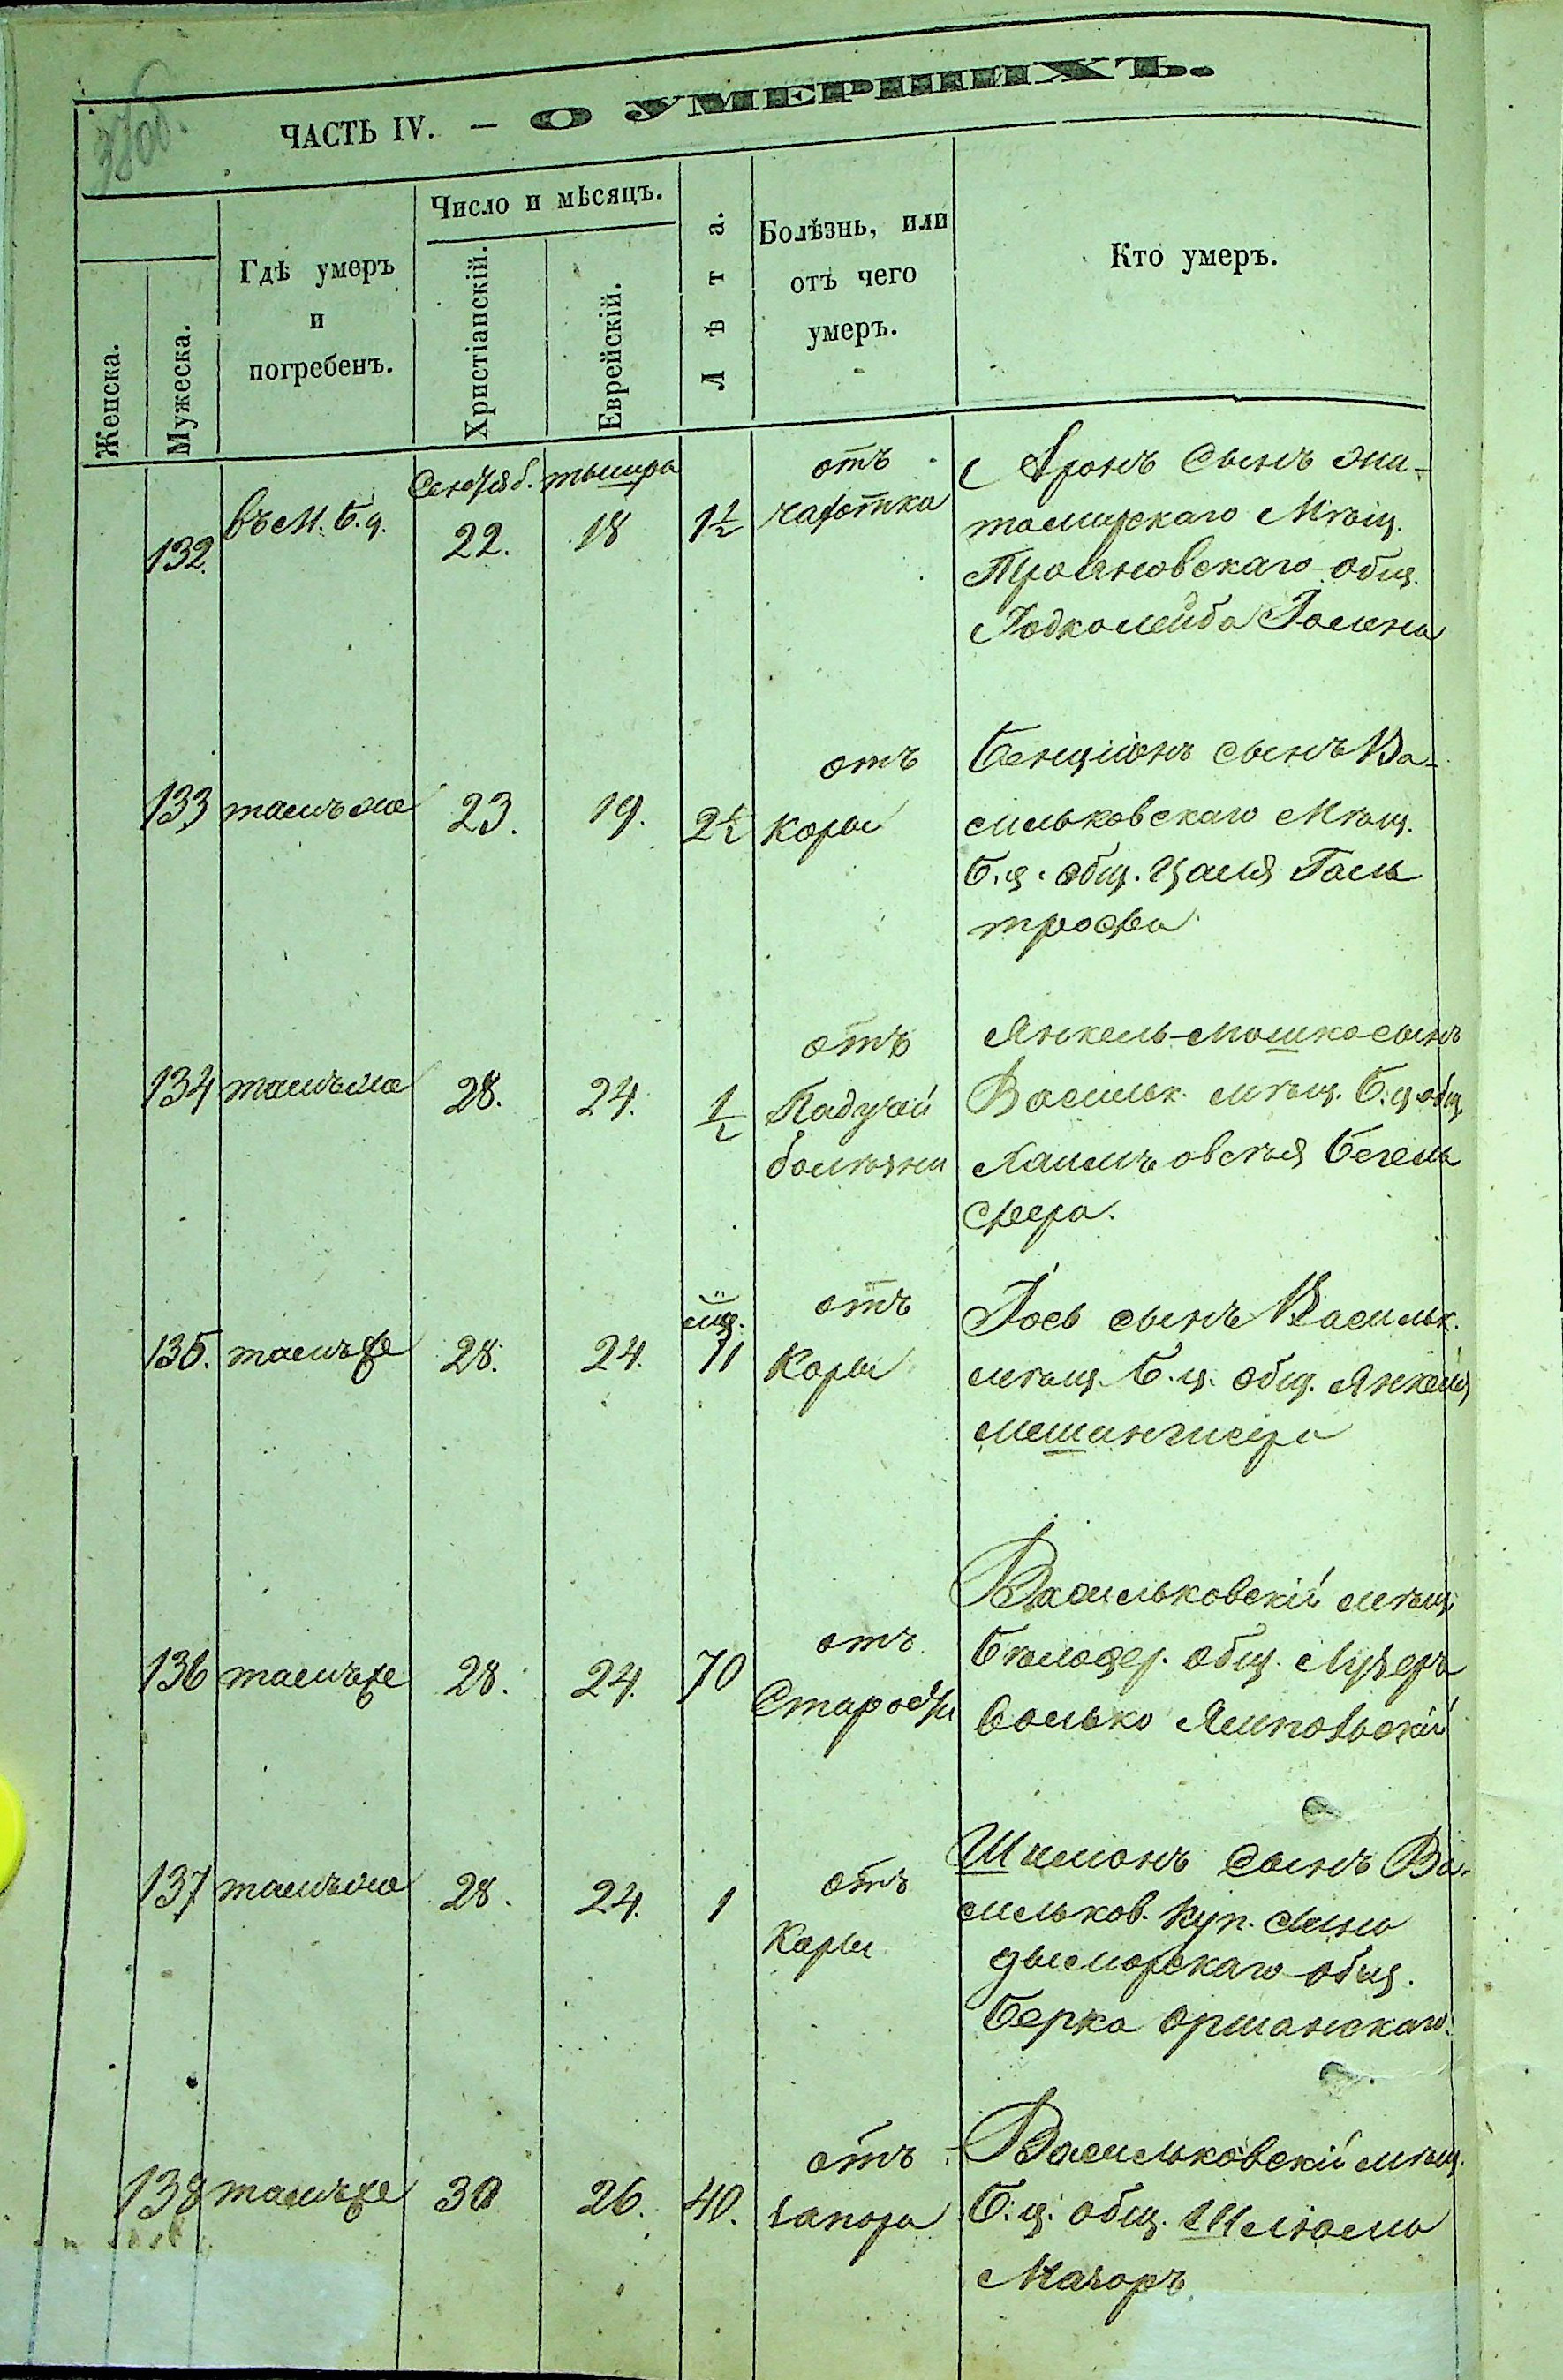 ЧАСТЬ IV. — О УМЕРШИХЪ.
Женска.
Мужеска.
Гдѣ умеръ
и
погребенъ.
Число и мѣсяцъ.
Христіанскій.
Еврейскій.
Лѣта.
Болѣзнь, или
отъ чего
умеръ.
Кто умеръ.
132. въ м. Б. Ц. Сентяб. 22. тышра 18 1½
отъ
чахотки
Аронъ сынъ жи-
томирскаго мѣщ.
Трояновскаго общ.
133 тамъ же 23. 19. 2½
отъ
Кори
Бенціонъ сынъ Ва-
сильковскаго мѣщ.
Б. ц. общ. Цаля Галь
134 тамъ же 28. 24. ½
отъ
Падучей
болѣзни
Янкель-Мошко сынъ
Васильк. мѣщ. Б. ц. общ.
135. тамъ же 28. 24. мц. 11
отъ
Кори
Іось сынъ Васильк.
мѣщ. Б. ц. общ. Янкеля
136 тамъ же 28. 24. 70
отъ
Старости
Васильковскій мѣщ.
Бѣлоцер. общ. Лузеръ
Волько Ямпольскій
137 тамъ же 28. 24. 1
отъ
Кори
Шимонъ сынъ Ва-
сильков. куп. сына
общ.
Берка Оршанскаго.
138 тамъ же 30 26. 40.
отъ
запора
Васильковскій мѣщ.
Б. ц. общ. Шлюма